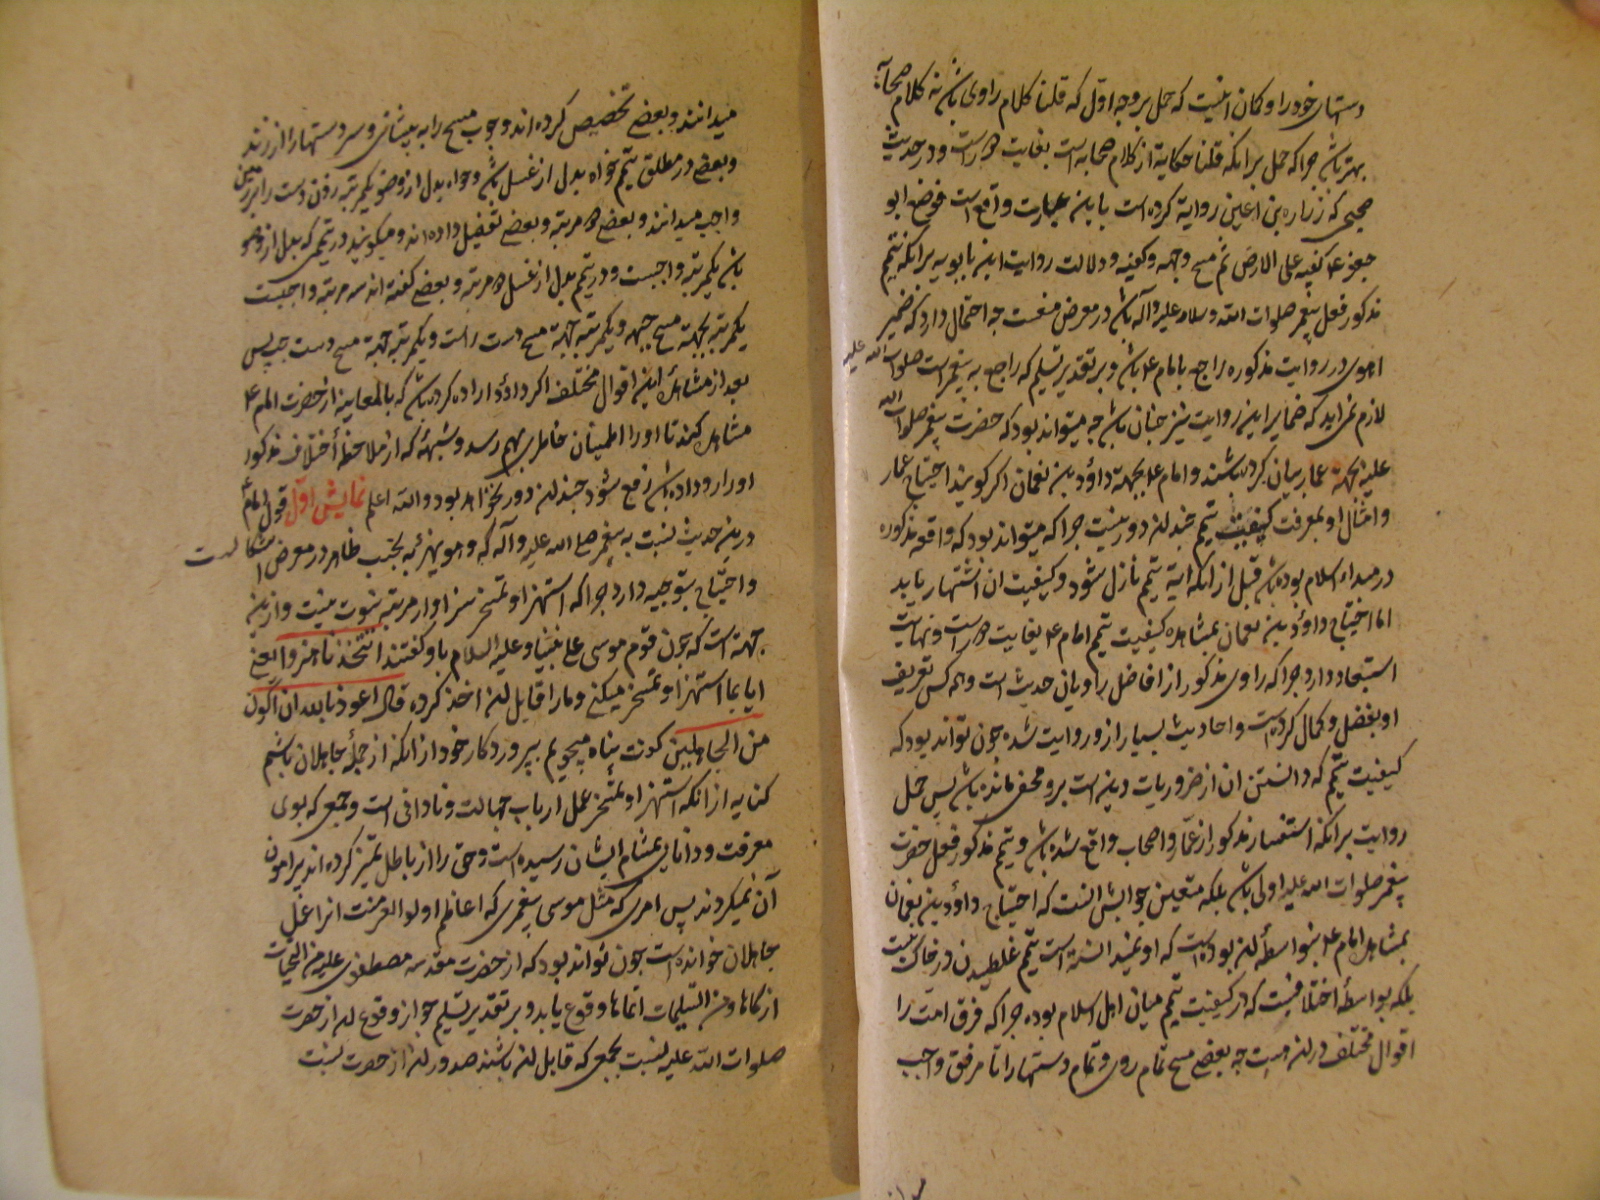 دستهای خود را و کان اینست که حمل بر وجه اول که قلنا کلام راوی باشد نه کلام صحابه
بهتر باشد چرا که حمل برانکه قلنا حکایة از کلام صحابه است بغایت دور است و در حدیث
صحیحی که زراره بن اعین روایة کرده است باین عبارت واقع است فوضع ابو
جعفر ع کفیه علی الارض ثم مسح وجهه و کفیه و دلالت روایت ابن بابویه برانکه تیمم
مذکور فعل پیغمبر صلوات الله و سلامه علیه و آله باشد در معرض منعست چه احتمال دارد که ضمیر
اهوی در روایت مذکوره راجع بامام ع باشد و بر تقدیر تسلیم که راجع به پیغمبر است صلوات الله علیه
لازم نمی اید که ضمایر این روایت نیز چنان باشد چه میتواند بود که حضرت پیغمبر صلوات الله
علیه بجهة عمار بیان کرده باشند و امام ع بجهة داؤد بن نعمان اگر گویند احتیاج عمار
و امثال او بمعرفت کیفیت تیمم چندان دور نیست چرا که میتواند بود که واقعه مذکوره
در مبداء اسلام بوده باشد قبل از انکه ایة تیمم نازل شود و کیفیت ان اشتهار یابد
اما احتیاج داؤد بن نعمان بمشاهده کیفیت تیمم امام ع بغایت دور است و نهایت
استبعاد دارد چرا که راوی مذکور از افاضل راویان حدیث است و همه کس تعریف
او بفضل و کمال کرده است و احادیث بسیار ازو روایت شده چون تواند بود که
کیفیت تیمم که دانستن ان از ضروریات دین است برو مخفی مانده باشد پس حمل
روایت برانکه استفسار مذکور از عمار و اصحاب واقع شده باشد و تیمم مذکور فعل حضرت
پیغمبر صلوات الله علیه اولی باشد بلکه متعین جوابش انست که احتیاج داؤد بن نعمان
بمشاهده امام ع نه بواسطه ان بوده است که او نمیدانسته است تیمم غلطیدن در خاک نیست
بلکه بواسطه اختلافیست که در کیفیت تیمم میان اهل اسلام بوده چرا که فرق امت را
اقوال مختلف در ان هست چه بعضی مسح تمام روی و تمام دستها را تا مرفق واجب
میدانند و بعضی تخصیص کرده اند وجوب مسح را به پیشانی و سر دستها را از زند
و بعضی در مطلق تیمم خواه بدل از غسل باشد و خواه بدل از وضو یکمرتبه زدن دست را بر زمین
واجب میدانند و بعضی دو مرتبه و بعضی تفصیل داده اند و میگویند در تیممی که بدل از وضو
باشد یکمرتبه واجبست و در تیمم بدل از غسل دو مرتبه و بعضی گفته اند سه مرتبه واجبست
یکمرتبه بجهة مسح جبهه و یکمرتبه بجهة مسح دست راست و یکمرتبه بجهة مسح دست چپ پس
بعد از مشاهده این اقوال مختلف اگر داؤد اراده کرده باشد که بالمعاینه از حضرت امام ع
مشاهده کند تا او را اطمینان خاطری بهم رسد و شبهه که از ملاحظه اختلاف مذکور
او را رو داده باشد رفع شود چندان دور نخواهد بود والله اعلم نمایش اول قول امام
درین حدیث نسبت به پیغمبر صلی الله علیه و آله که و هو یهزء به بحسب ظاهر در معرض اشکالست
و احتیاج بتوجیه دارد چرا که استهزا و تمسخر سزاوار مرتبه نبوت نیست و ازین
جهة است که چون قوم موسی علی نبینا و علیه السلام باو گفتند اتتخذنا هزوا یعنی
ایا بما استهزا و تمسخر میکنی و ما را قابل ان اخذ کرده قال اعوذ بالله ان اکون
من الجاهلین گفت پناه میجویم بپروردگار خود از انکه از جملهٔ جاهلان باشم
کنایه از انکه استهزا و تمسخر عمل ارباب جهالت و نادانی است و جمعی که بوی
معرفت و دانایی بمشام ایشان رسیده است و حق را از باطل تمیز کرده اند پیرامون
آن نمیگردند پس امری که مثل موسی پیغمبری که اعاظم اولو العزمست انرا عمل
جاهلان خوانده است چون تواند بود که از حضرت مقدسه مصطفوی علیه من التحیات
ازکاها و من التسلیمات اتمها وقوع یابد و بر تقدیر تسلیم جواز وقوع ان از حضرت
صلوات الله علیه نسبت بجمعی که قابل ان باشند صدور ان از حضرت نسبت